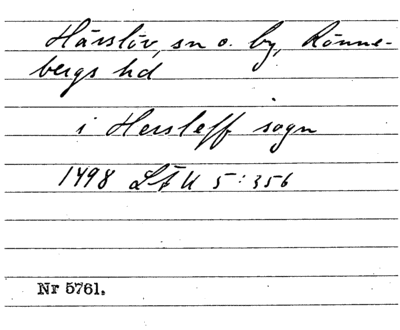 Härslöv, sn o. by, Rönne-
bergs hd
i Hersleff sogn
1498 LÄU 5:356
Nr 5761.